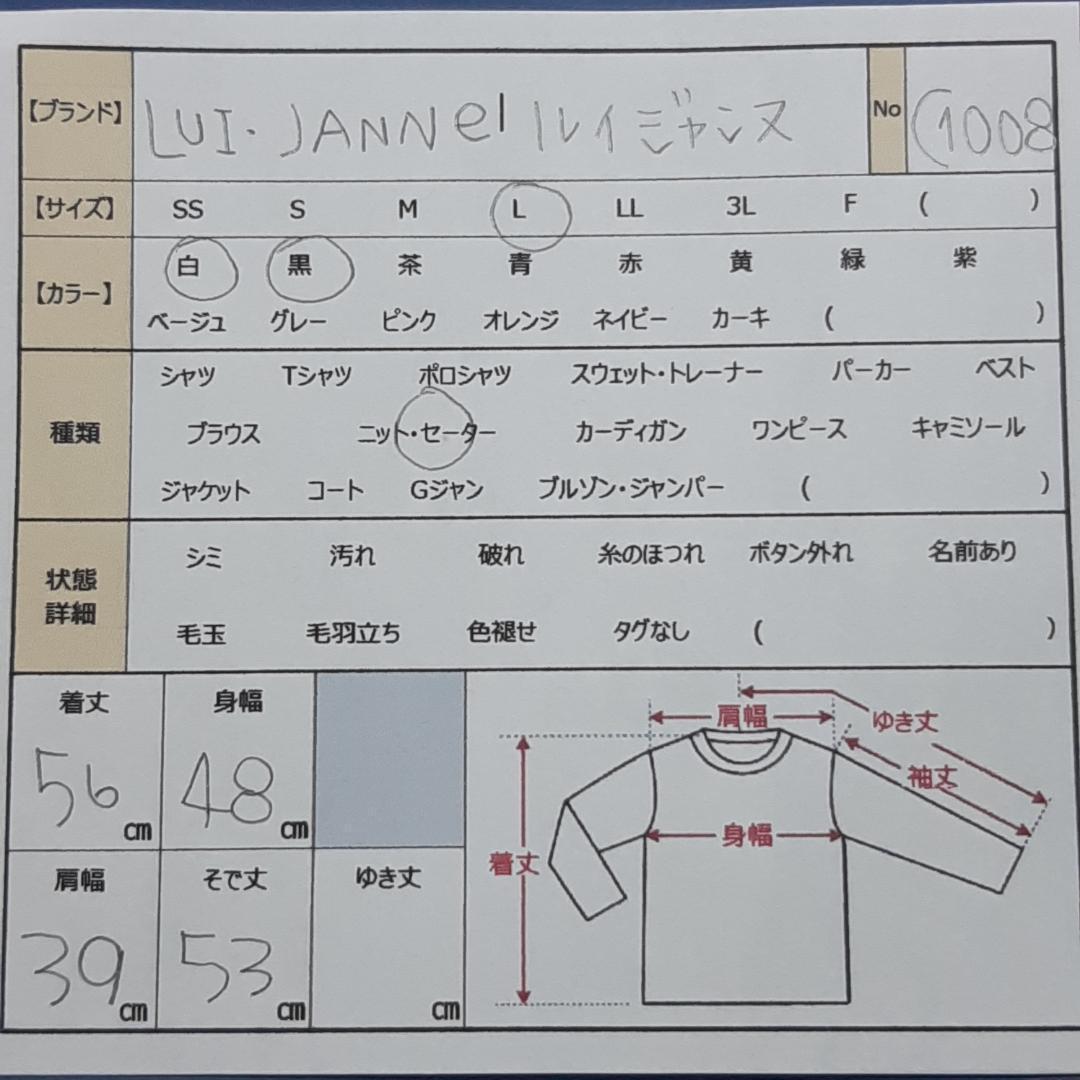 【ブランド】 LUI・JANNel ルイジャンヌ No (1008
【サイズ】 SS S M L LL 3L F ( )
【カラー】 白 黒 茶 青 赤 黄 緑 紫
ベージュ グレー ピンク オレンジ ネイビー カーキ ( )
種類 シャツ Tシャツ ポロシャツ スウェット・トレーナー パーカー ベスト
ブラウス ニット・セーター カーディガン ワンピース キャミソール
ジャケット コート Gジャン ブルゾン・ジャンパー ( )
状態
詳細
シミ 汚れ 破れ 糸のほつれ ボタン外れ 名前あり
毛玉 毛羽立ち 色褪せ タグなし ( )
着丈 身幅
56 cm 48 cm
肩幅 そで丈 ゆき丈
39 cm 53 cm cm
肩幅
ゆき丈
袖丈
身幅
着丈